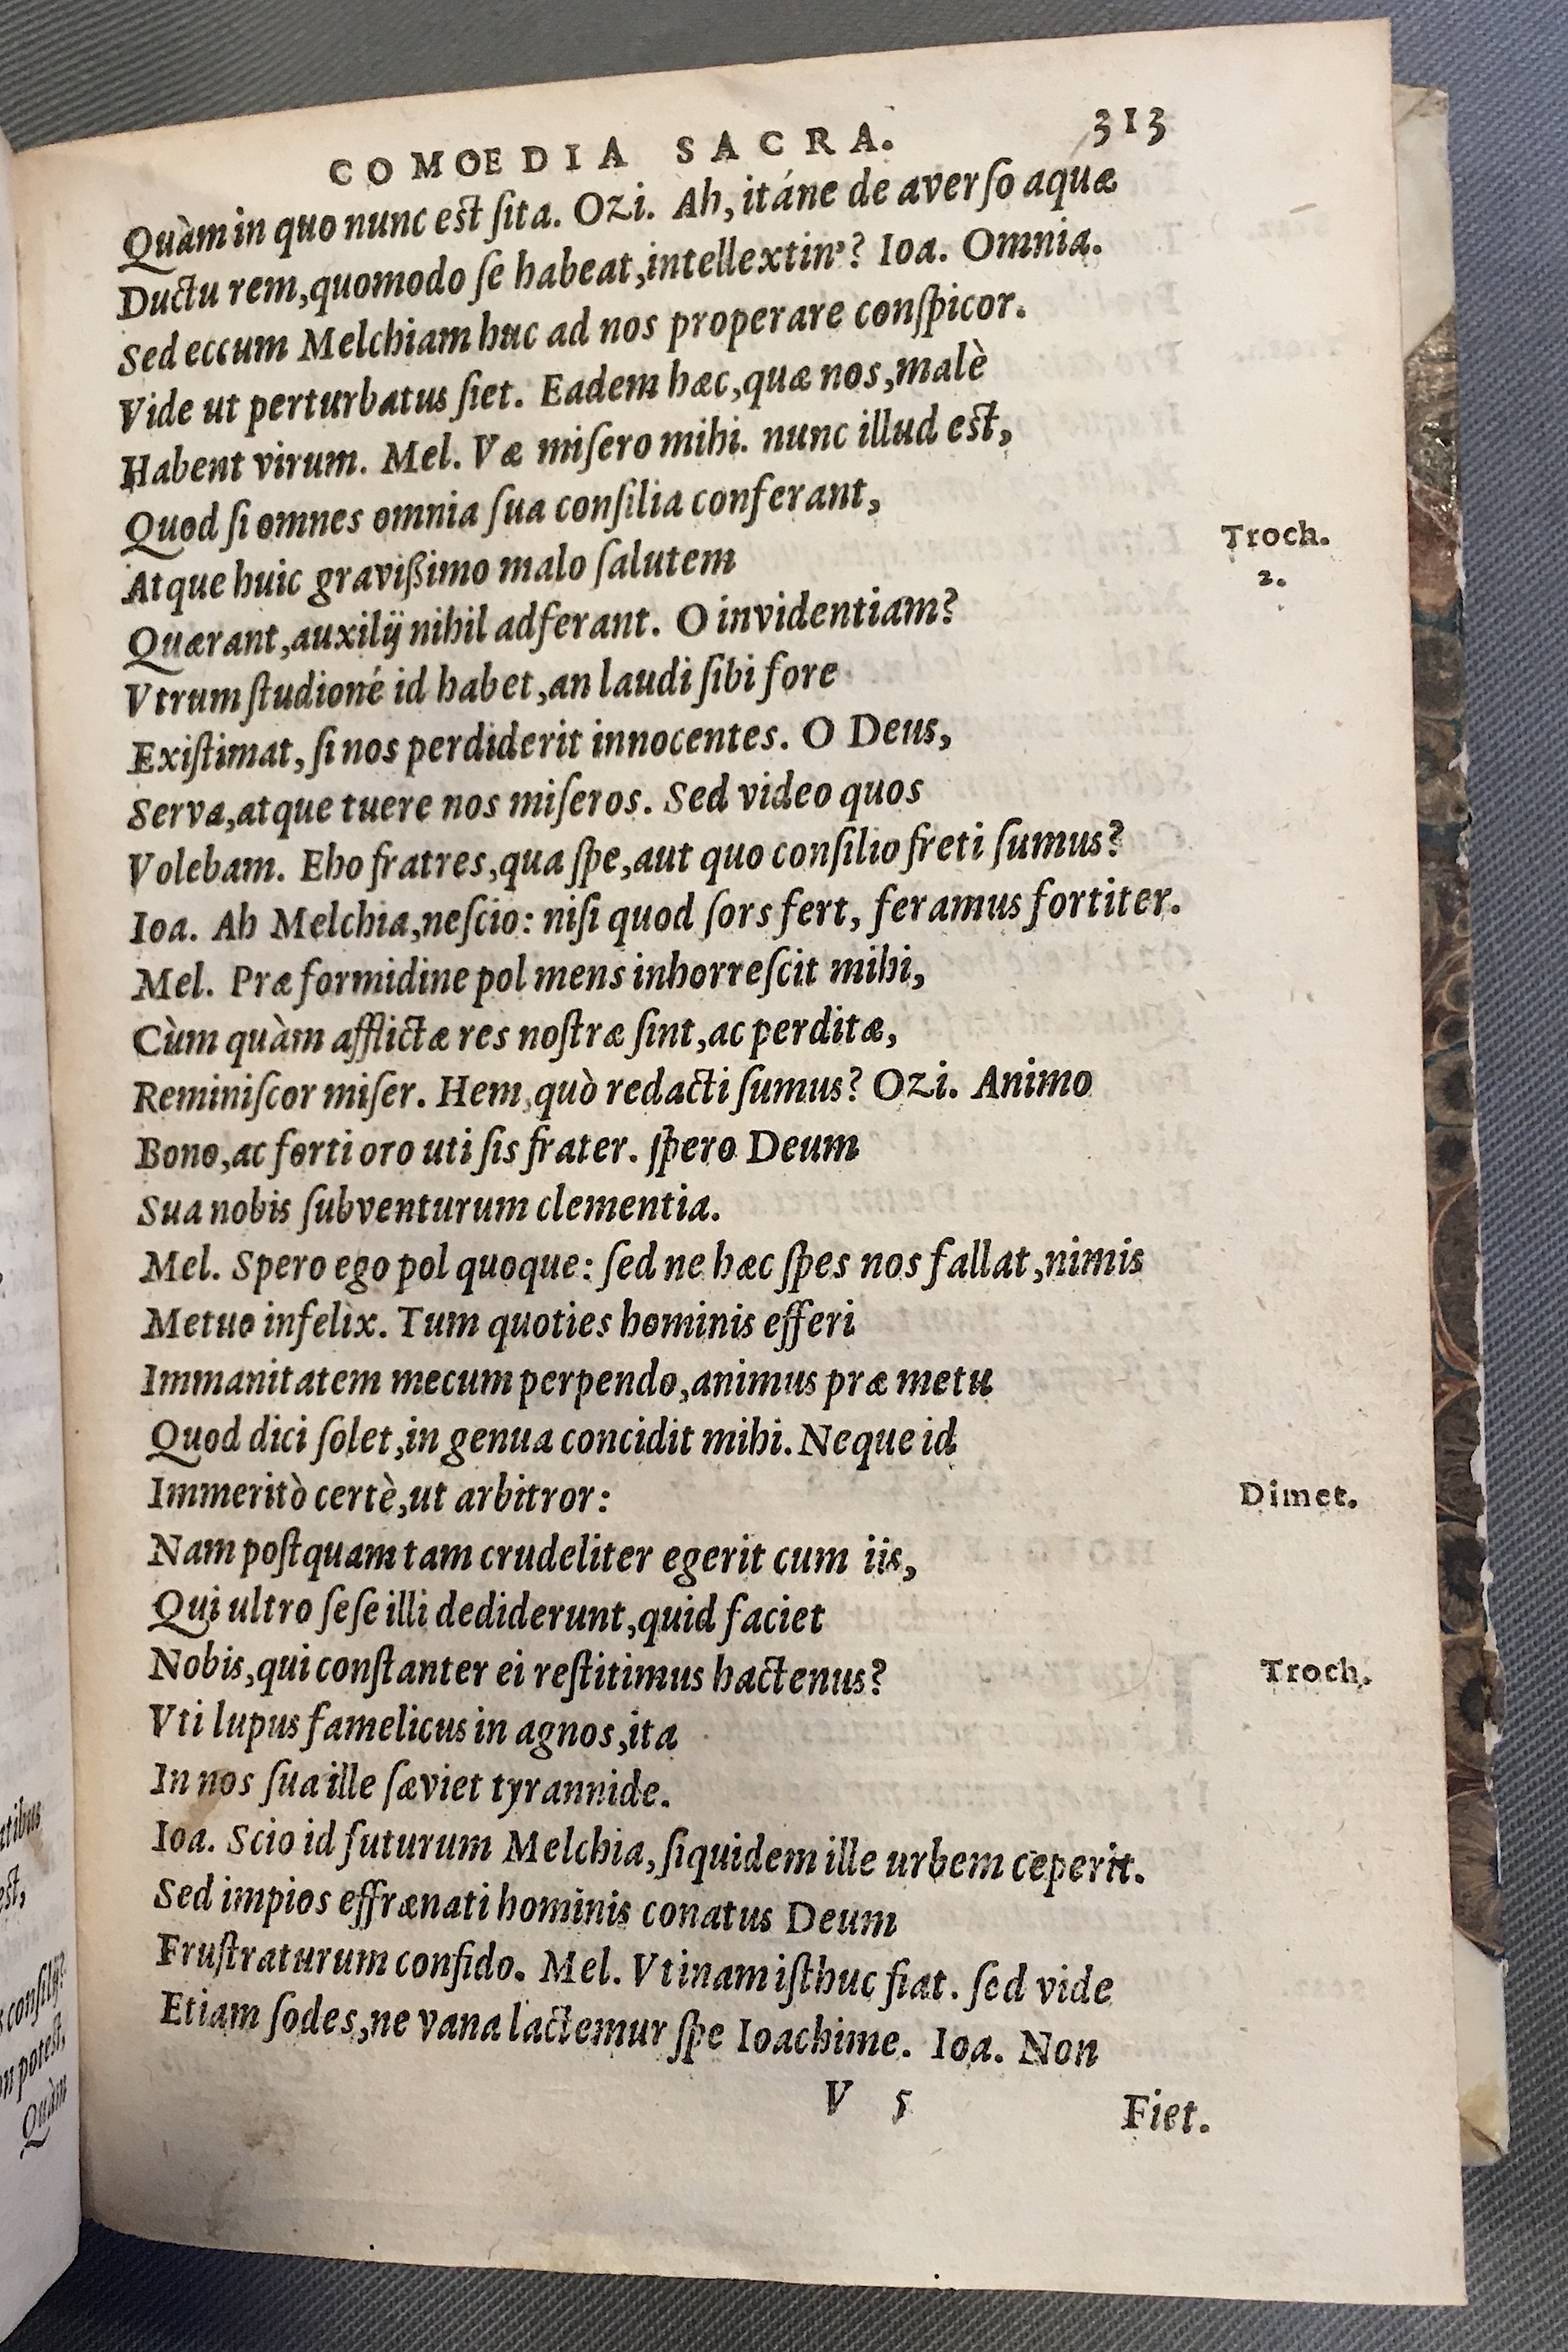 COMOEDIA SACRA. 313
Quàm in quo nunc est ſita. Ozi. Ah, itáne de averſo aquæ
Ductu rem, quomodo ſe habeat, intellextin'? Ioa. Omnia.
Sed eccum Melchiam huc ad nos properare conſpicor.
Vide ut perturbatus ſiet. Eadem hæc, quæ nos, malè
Habent virum. Mel. Væ miſero mihi. nunc illud est,
Quod ſi omnes omnia ſua conſilia conferant,
Atque huic gravißimo malo ſalutem
Troch.
2.
Quærant, auxilij nihil adferant. O invidentiam?
Vtrum ſtudioné id habet, an laudi ſibi fore
Exiſtimat, ſi nos perdiderit innocentes. O Deus,
Serva, atque tuere nos miſeros. Sed video quos
Volebam. Eho fratres, qua ſpe, aut quo conſilio freti ſumus?
Ioa. Ah Melchia, neſcio: niſi quod ſors fert, feramus fortiter.
Mel. Præ formidine pol mens inhorreſcit mihi,
Cùm quàm afflictæ res noſtræ ſint, ac perditæ,
Reminiſcor miſer. Hem, quò redacti ſumus? Ozi. Animo
Bono, ac forti oro uti ſis frater. ſpero Deum
Sua nobis ſubventurum clementia.
Mel. Spero ego pol quoque: ſed ne hæc ſpes nos fallat, nimis
Metuo infelix. Tum quoties hominis efferi
Immanitatem mecum perpendo, animus præ metu
Quod dici ſolet, in genua concidit mihi. Neque id
Immeritò certè, ut arbitror:
Dimet.
Nam poſtquam tam crudeliter egerit cum iis,
Qui ultro ſeſe illi dediderunt, quid faciet
Nobis, qui conſtanter ei reſtitimus hactenus?
Troch.
Vti lupus famelicus in agnos, ita
In nos ſua ille ſæviet tyrannide.
Ioa. Scio id futurum Melchia, ſiquidem ille urbem ceperit.
Sed impios effrænati hominis conatus Deum
Fruſtraturum confido. Mel. Vtinam iſthuc fiat. ſed vide
Etiam ſodes, ne vana lactemur ſpe Ioachime. Ioa. Non
V 5 Fiet.
est,
conſilij?
potest,
Quàm